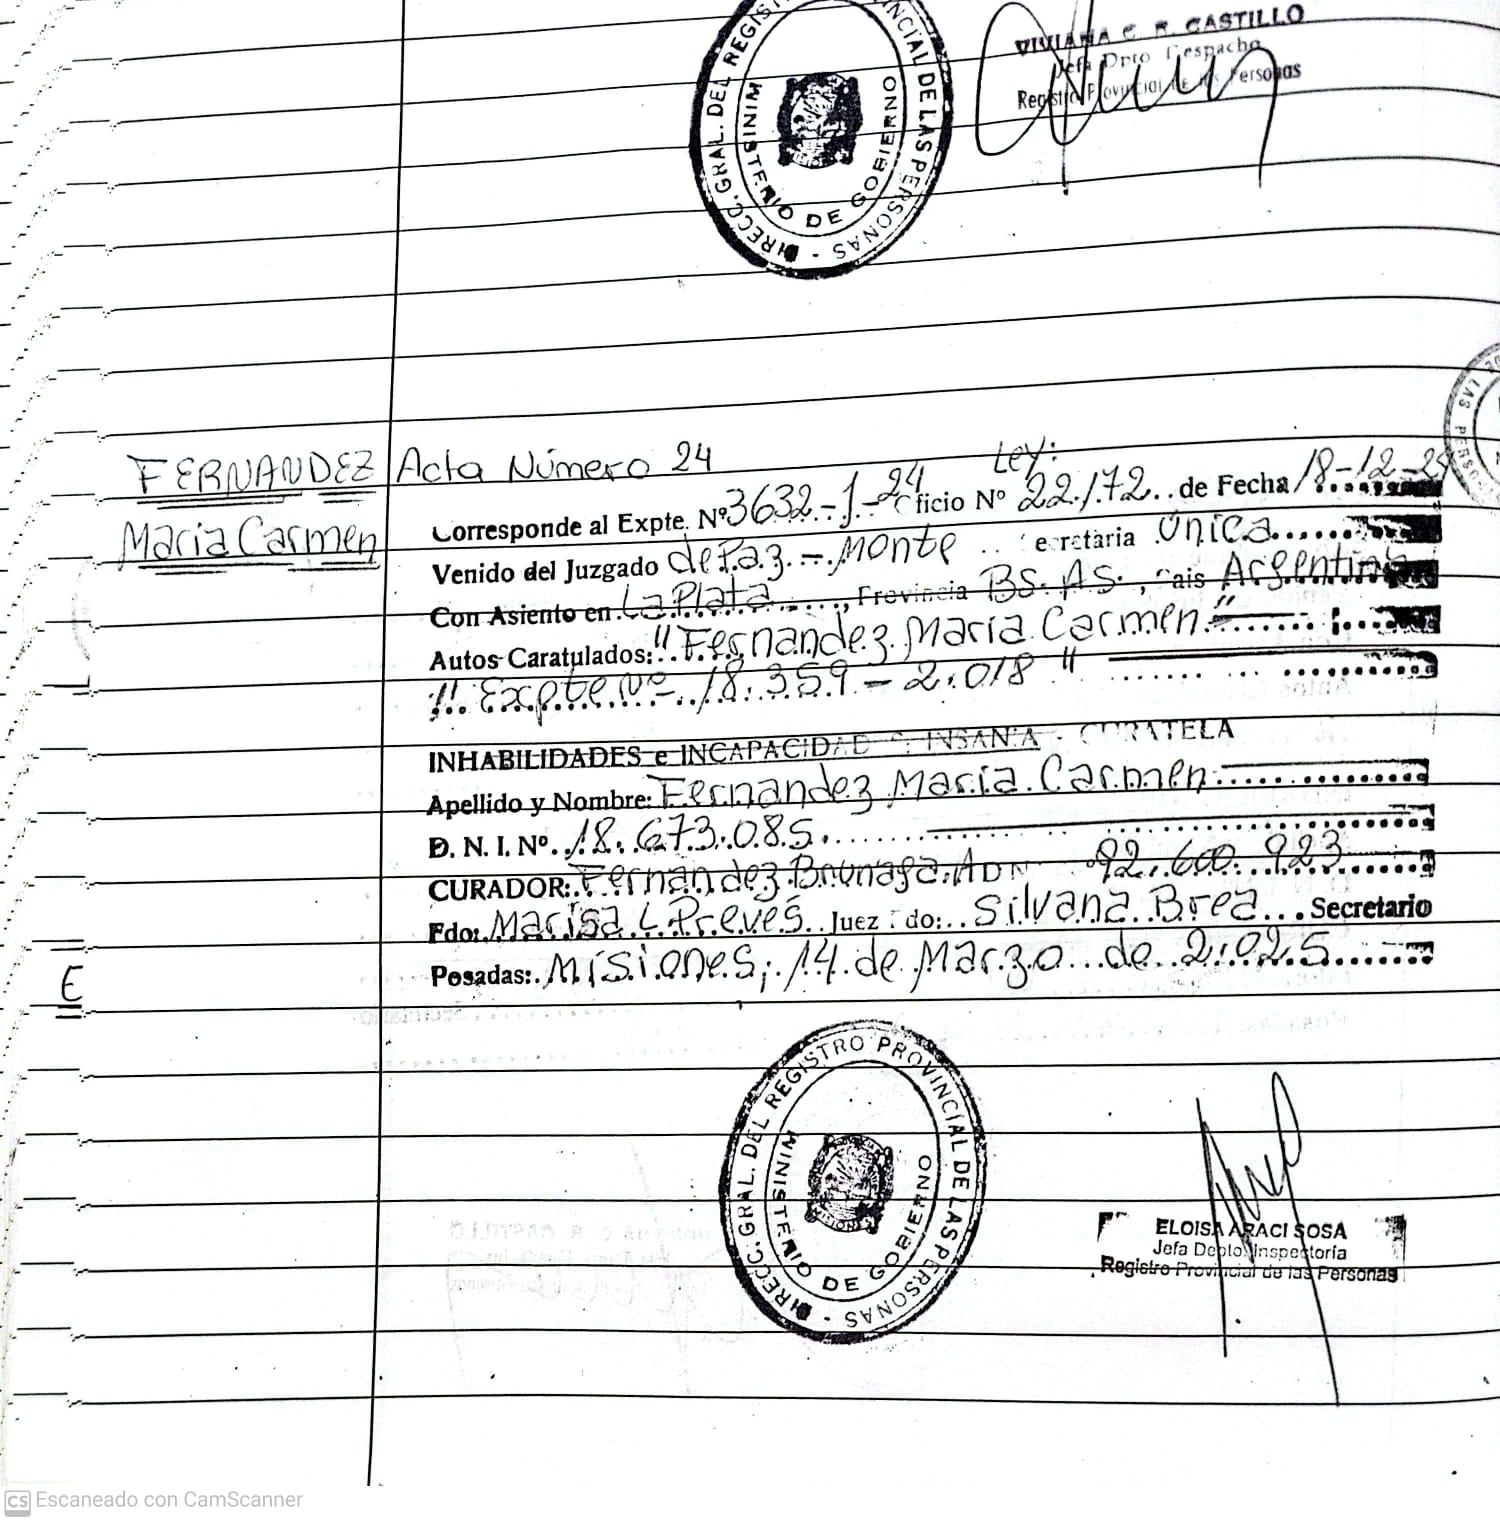 DIRECC. GRAL. DEL REGIS PROVINCIAL DE LAS PERSONAS -
MINISTERIO DE GOBIERNO
VIVIANA C. R. CASTILLO
Jefa Dpto Despacho
Registro Provincial de las Personas
FERNANDEZ
Maria Carmen
Acta Número 24
Ley:
Corresponde al Expte. Nº 3632-1-24 Oficio Nº 22.172.. de Fecha 18-12-24
Venido del Juzgado de Paz.-.Monte .. Secretaria Única
Con Asiento en La Plata, Provincia BS. AS., Pais Argentina
Autos Caratulados: "Fernandez Maria Carmen"
"Expte Nº 18.359 - 2.018"
INHABILIDADES e INCAPACIDAD INSANIA - CURATELA
Apellido y Nombre: Fernandez Maria Carmen
D. N. I. Nº 18.673.085.
CURADOR: Fernandez 92.600.923
Fdo: Marisa L Preves Juez Fdo: Silvana Brea Secretario
Posadas: Misiones, 14 de Marzo de 2.025
E
DIRECC. GRAL. DEL REGISTRO PROVINCIAL DE LAS PERSONAS -
MINISTERIO DE GOBIERNO
ELOISA ARACI SOSA
Jefa Depto. Inspectoría
Registro Provincial de las Personas
CS Escaneado con CamScanner